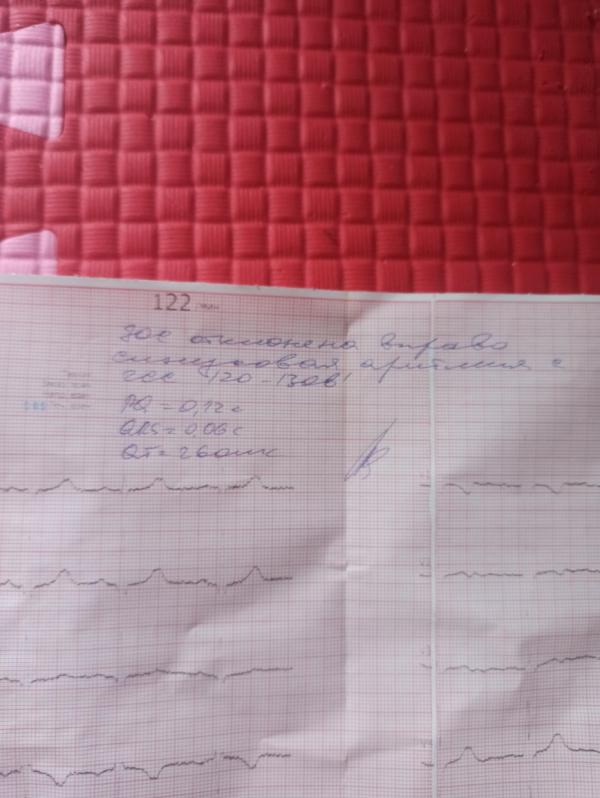 122
ЭОС отклонена вправо
синусовая аритмия с
ЧСС 120-130в1
PQ = 0,12с
QRS = 0,06с
QT = 260мс